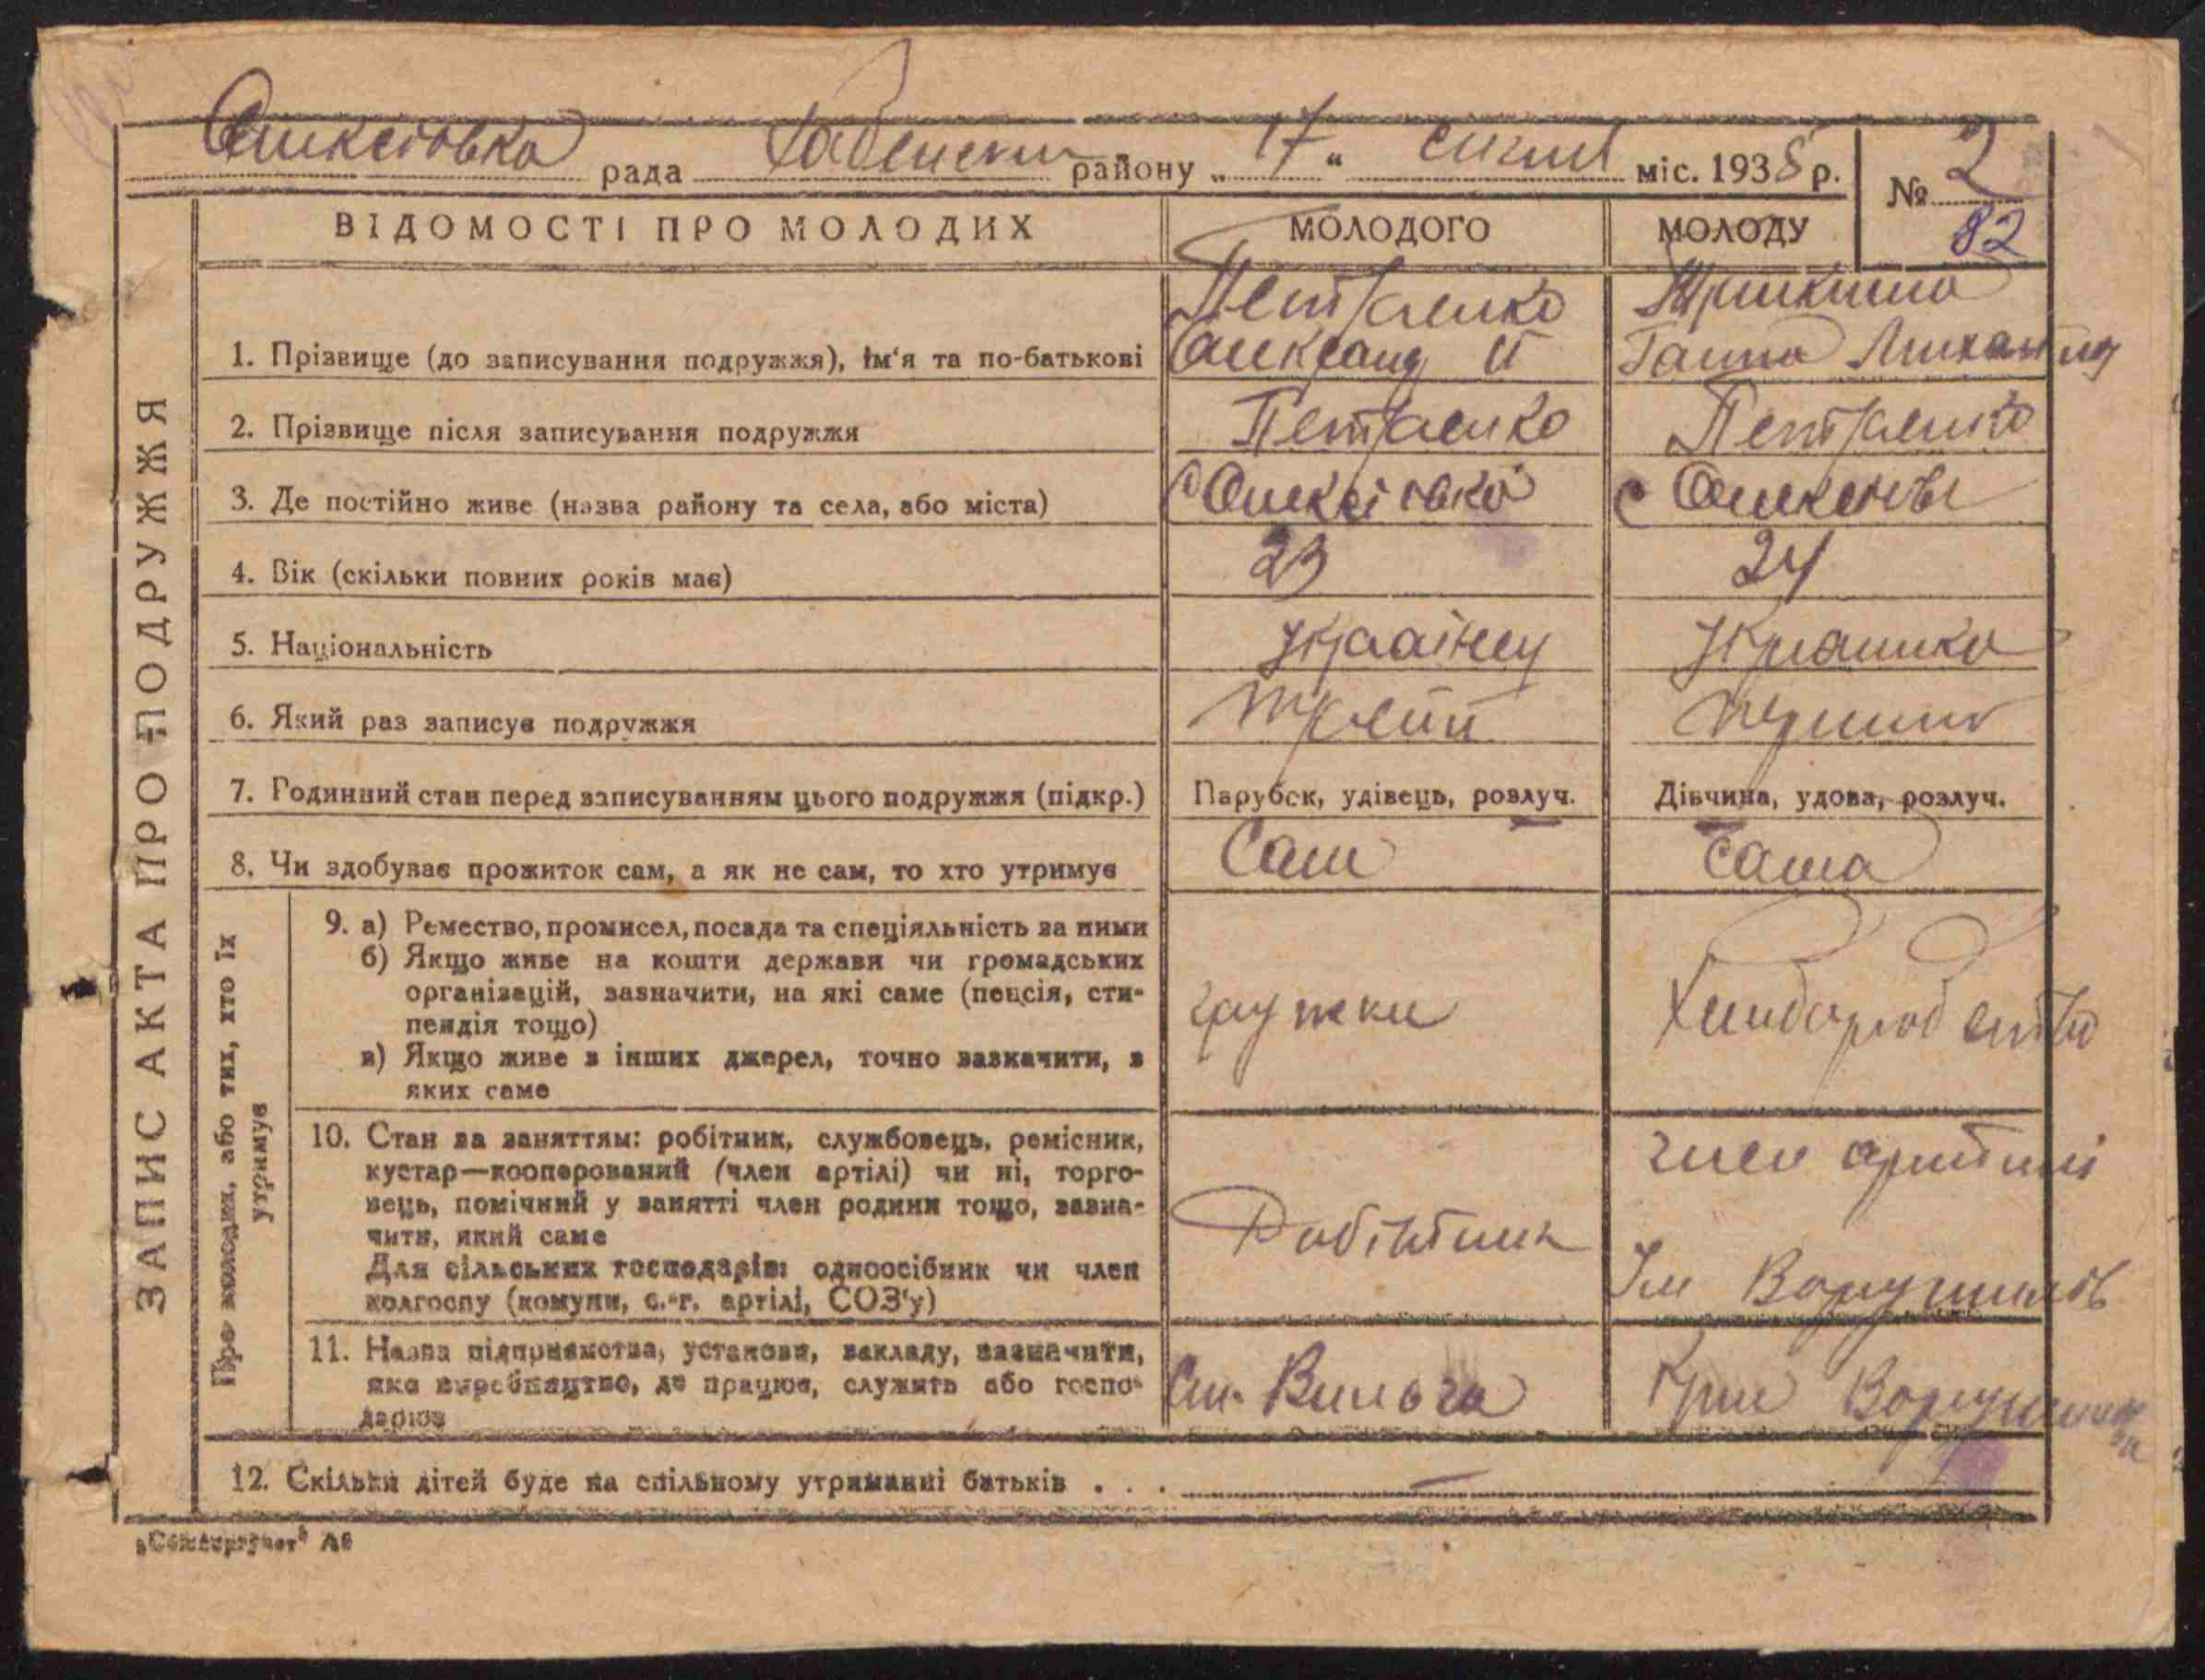 рада району „17“ січня міс. 1938 р.
№ 2
82
ВІДОМОСТІ ПРО МОЛОДИХ МОЛОДОГО МОЛОДУ
ЗАПИС АКТА ПРО ПОДРУЖЖЯ
1. Прізвище (до записування подружжя), ім'я та по-батькові
Петренко
Ганна
2. Прізвище після записування подружжя Петренко Петренко
3. Де постійно живе (назва району та села, або міста) с
4. Вік (скільки повних років має) 23 24
5. Національність Українец Украинка
6. Який раз записує подружжя третій
7. Родинний стан перед записуванням цього подружжя (підкр.) Парубок, удівець, розлуч. Дівчина, удова, розлуч.
8. Чи здобуває прожиток сам, а як не сам, то хто утримує Сам Сама
Про молодих, або тих, хто їх
утримує
9. а) Ремество, промисел, посада та спеціяльність за ними
б) Якщо живе на кошти держави чи громадських
організацій, зазначити, на які саме (пенсія, сти-
пендія тощо)
в) Якщо живе з інших джерел, точно зазначити, з
яких саме
грузчик
Хлиборобство
10. Стан за заняттям: робітник, службовець, ремісник,
кустар—кооперований (член артілі) чи ні, торго-
вець, помічний у занятті член родини тощо, зазна-
чити, який саме
Для сільських господарів: одноосібник чи член
колгоспу (комуни, с.-г. артілі, СОЗ'у)
Робітник
член артілі
Ім Ворушилов
11. Назва підприємства, установи, закладу, зазначити,
яке виробництво, де працює, служить або госпо-
дарює
12. Скільки дітей буде на спільному утриманні батьків . . . —